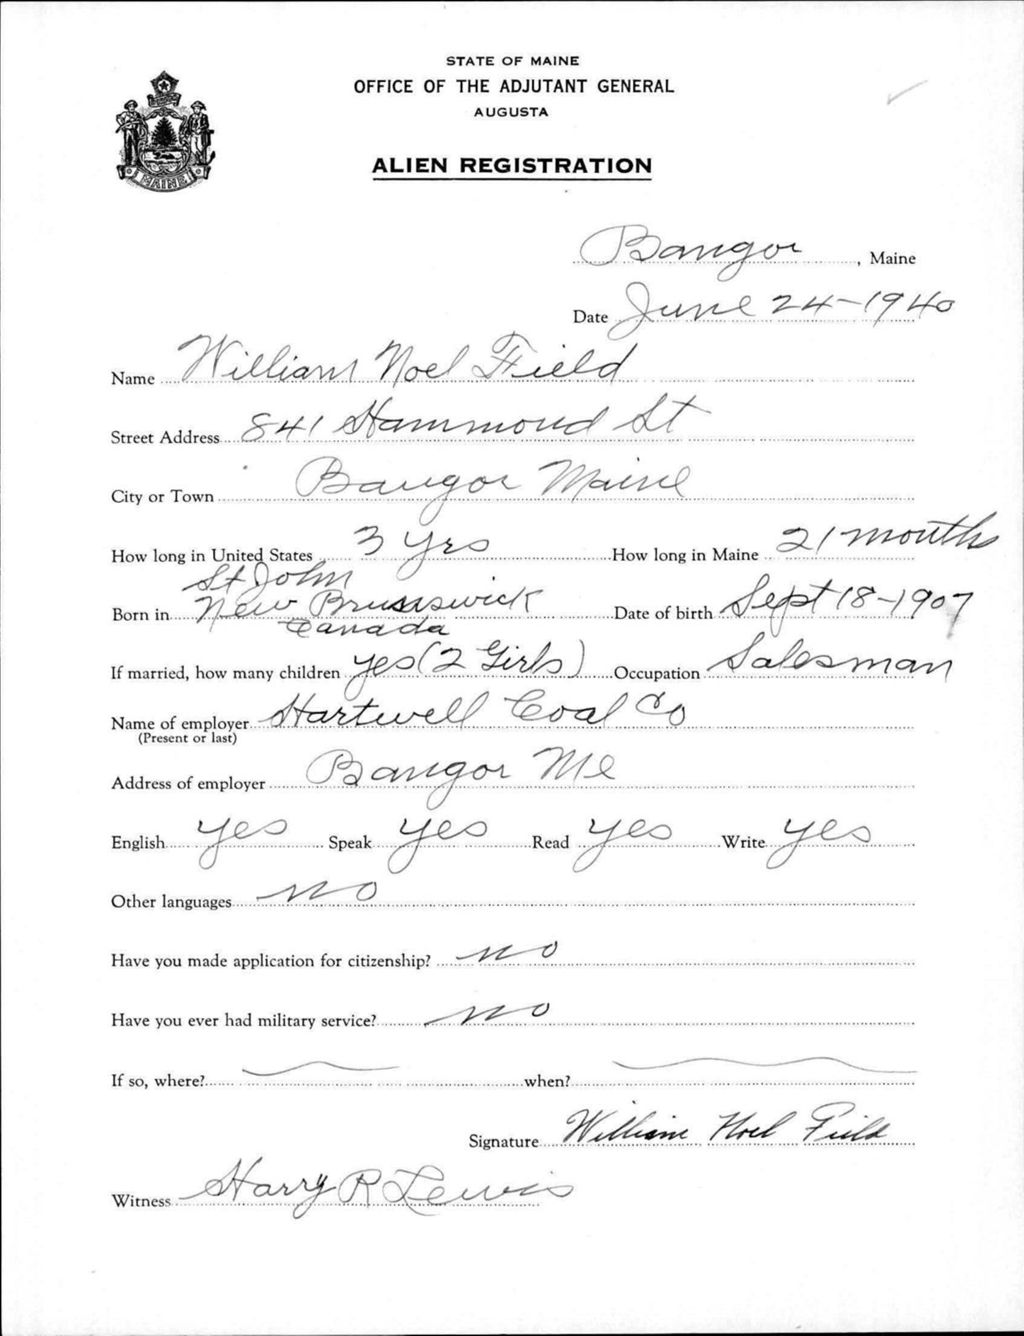 STATE OF MAINE
OFFICE OF THE ADJUTANT GENERAL
AUGUSTA
MAINE
ALIEN REGISTRATION
Bangor, Maine
Date June 24-1940
Name William Noel Field
Street Address 841 Hammond St
City or Town Bangor Maine
How long in United States 3 yrs How long in Maine 21 months
St John
Born in New Brunswick Date of birth Sept 18-1907
Canada
If married, how many children yes (2 Girls) Occupation Salesman
Name of employer Hartwell Coal Co
(Present or last)
Address of employer Bangor Me
English yes Speak yes Read yes Write yes
Other languages no
Have you made application for citizenship? no
Have you ever had military service? no
If so, where? when?
Signature William Noel Field
Witness Harry R Lewis